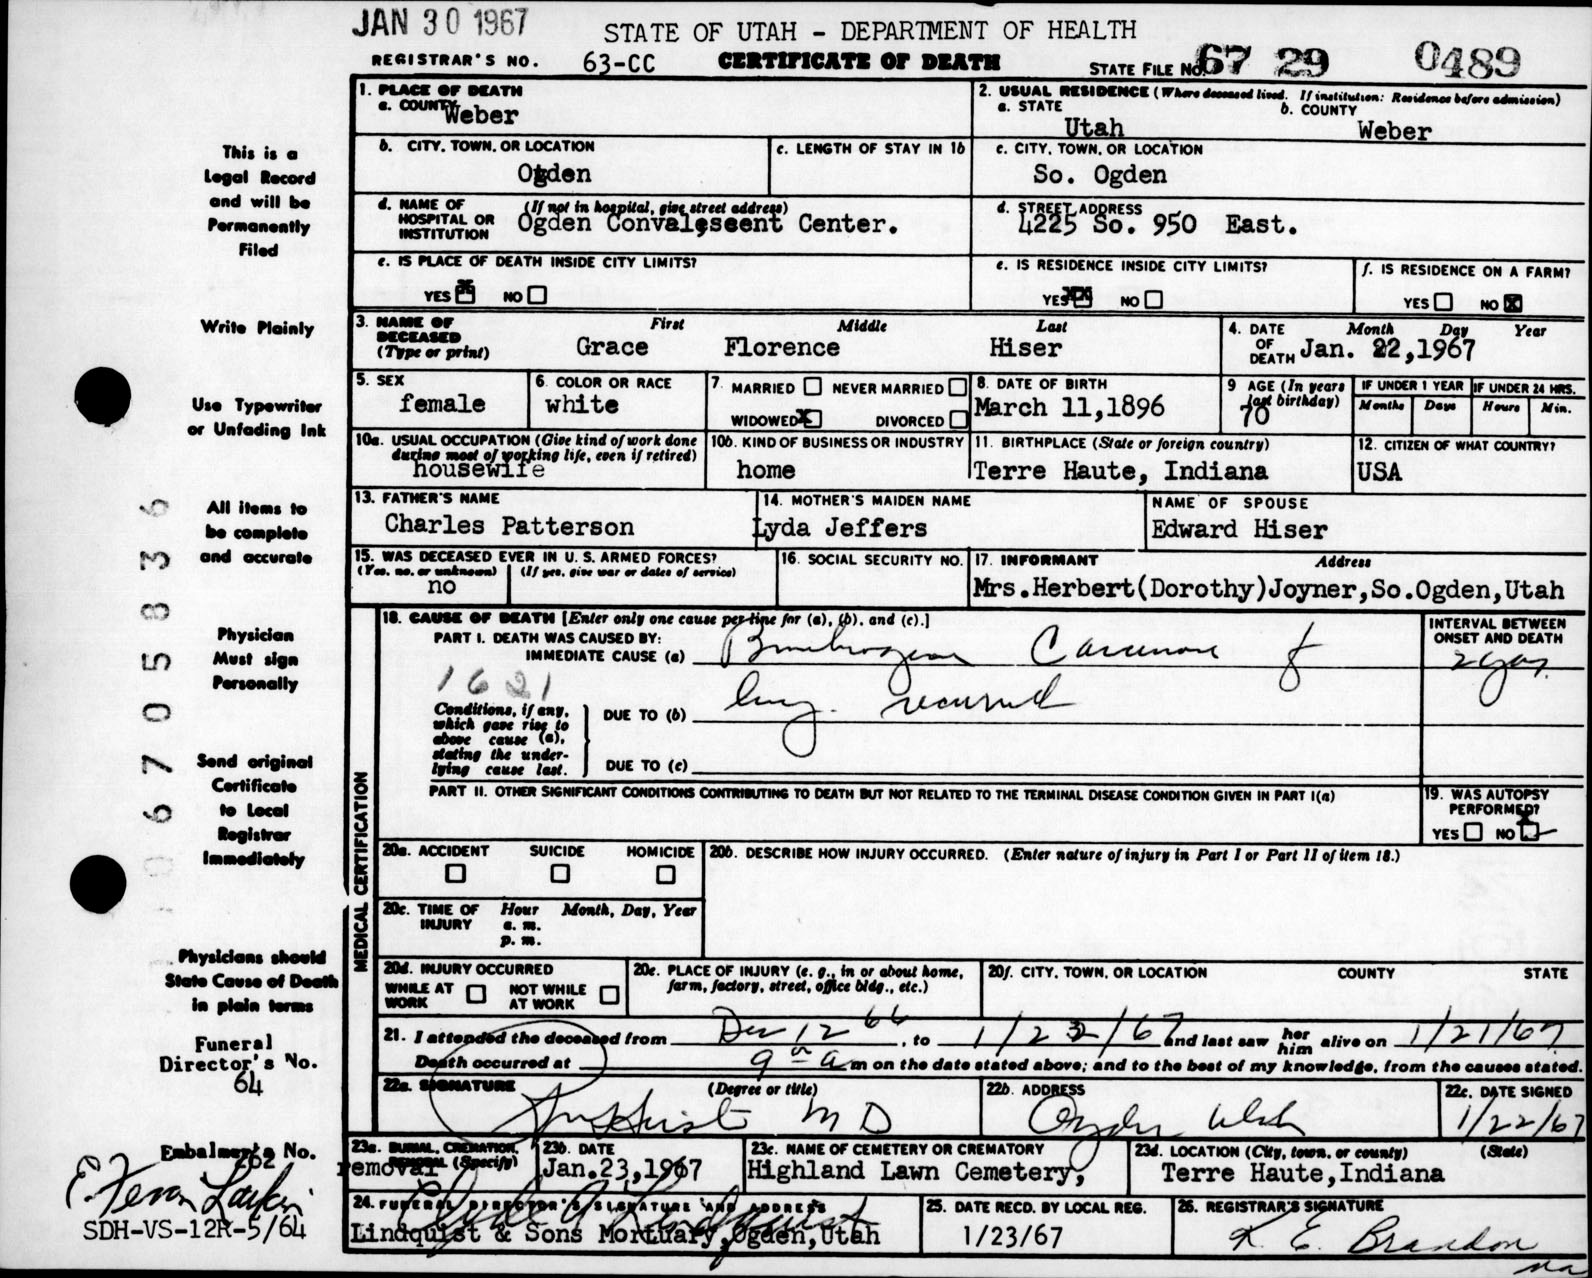 JAN 30 1967
STATE OF UTAH - DEPARTMENT OF HEALTH
REGISTRAR'S NO. 63-CC CERTIFICATE OF DEATH STATE FILE NO. 67 29 0489
1. PLACE OF DEATH
a. COUNTY Weber
2. USUAL RESIDENCE (Where deceased lived. If institution: Residence before admission)
a. STATE Utah b. COUNTY Weber
b. CITY, TOWN, OR LOCATION Ogden
c. LENGTH OF STAY IN 1b
c. CITY, TOWN, OR LOCATION So. Ogden
d. NAME OF HOSPITAL OR INSTITUTION (If not in hospital, give street address) Ogden Convalescent Center.
d. STREET ADDRESS 4225 So. 950 East.
e. IS PLACE OF DEATH INSIDE CITY LIMITS?
YES X NO
e. IS RESIDENCE INSIDE CITY LIMITS?
YES XX NO
f. IS RESIDENCE ON A FARM?
YES NO X
3. NAME OF DECEASED (Type or print) First Middle Last
Grace Florence Hiser
4. DATE OF DEATH Month Day Year
Jan. 22,1967
5. SEX female
6. COLOR OR RACE white
7. MARRIED NEVER MARRIED
WIDOWED X DIVORCED
8. DATE OF BIRTH March 11,1896
9 AGE (In years last birthday) 70
IF UNDER 1 YEAR Months Days
IF UNDER 24 HRS. Hours Min.
10a. USUAL OCCUPATION (Give kind of work done during most of working life, even if retired) housewife
10b. KIND OF BUSINESS OR INDUSTRY home
11. BIRTHPLACE (State or foreign country) Terre Haute, Indiana
12. CITIZEN OF WHAT COUNTRY? USA
13. FATHER'S NAME Charles Patterson
14. MOTHER'S MAIDEN NAME Lyda Jeffers
NAME OF SPOUSE Edward Hiser
15. WAS DECEASED EVER IN U. S. ARMED FORCES?
(Yes, no, or unknown) (If yes, give war or dates of service)
no
16. SOCIAL SECURITY NO.
17. INFORMANT Address
Mrs.Herbert(Dorothy)Joyner,So.Ogden,Utah
MEDICAL CERTIFICATION
18. CAUSE OF DEATH [Enter only one cause per line for (a), (b), and (c).]
PART I. DEATH WAS CAUSED BY:
IMMEDIATE CAUSE (a)
INTERVAL BETWEEN ONSET AND DEATH
1621
Conditions, if any, which gave rise to above cause (a), stating the underlying cause last.
DUE TO (b) lung.
DUE TO (c)
PART II. OTHER SIGNIFICANT CONDITIONS CONTRIBUTING TO DEATH BUT NOT RELATED TO THE TERMINAL DISEASE CONDITION GIVEN IN PART I(a)
19. WAS AUTOPSY PERFORMED?
YES NO X
20a. ACCIDENT SUICIDE HOMICIDE
20b. DESCRIBE HOW INJURY OCCURRED. (Enter nature of injury in Part I or Part II of item 18.)
20c. TIME OF INJURY Hour Month, Day, Year
a. m.
p. m.
20d. INJURY OCCURRED
WHILE AT WORK NOT WHILE AT WORK
20e. PLACE OF INJURY (e. g., in or about home, farm, factory, street, office bldg., etc.)
20f. CITY, TOWN, OR LOCATION COUNTY STATE
21. I attended the deceased from Dec 12 66, to 1/22/67 and last saw her him alive on 1/21/67
Death occurred at 9 a m on the date stated above; and to the best of my knowledge, from the causes stated.
22a. SIGNATURE (Degree or title) M D
22b. ADDRESS Ogden Utah
22c. DATE SIGNED 1/22/67
23a. BURIAL, CREMATION, REMOVAL (Specify) removal
23b. DATE Jan.23,1967
23c. NAME OF CEMETERY OR CREMATORY Highland Lawn Cemetery,
23d. LOCATION (City, town, or county) (State) Terre Haute,Indiana
24. FUNERAL DIRECTOR'S SIGNATURE AND ADDRESS
Lindquist & Sons Mortuary,Ogden,Utah
25. DATE RECD. BY LOCAL REG. 1/23/67
26. REGISTRAR'S SIGNATURE K. E. Brandon
This is a
Legal Record
and will be
Permanently
Filed
Write Plainly
Use Typewriter
or Unfading Ink
All items to
be complete
and accurate
Physician
Must sign
Personally
Send original
Certificate
to Local
Registrar
Immediately
Physicians should
State Cause of Death
in plain terms
Funeral
Director's No.
64
Embalmer's No.
262
E. Feron Larkin
SDH-VS-12R-5/64